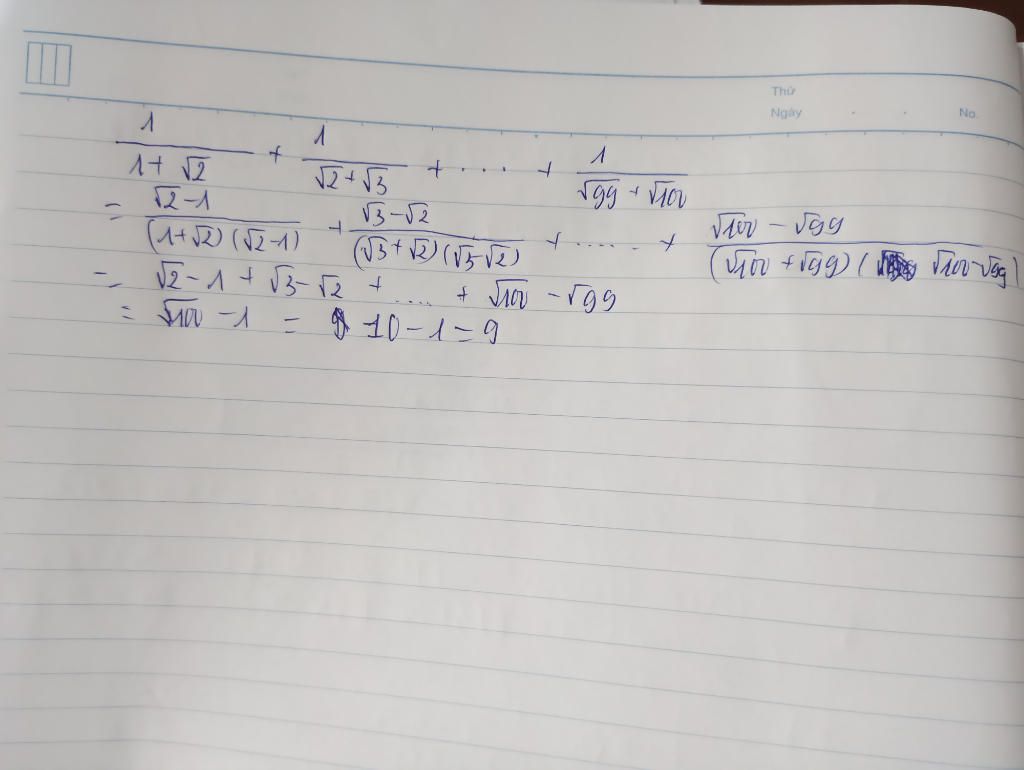 Thứ
Ngày . . No.
1/(1 + √2) + 1/(√2 + √3) + .... + 1/(√99 + √100)
= (√2 - 1)/((1 + √2)(√2 - 1)) + (√3 - √2)/((√3 + √2)(√3 - √2)) + ..... + (√100 - √99)/((√100 + √99)(√100 - √99))
= √2 - 1 + √3 - √2 + .... + √100 - √99
= √100 - 1 = 10 - 1 = 9